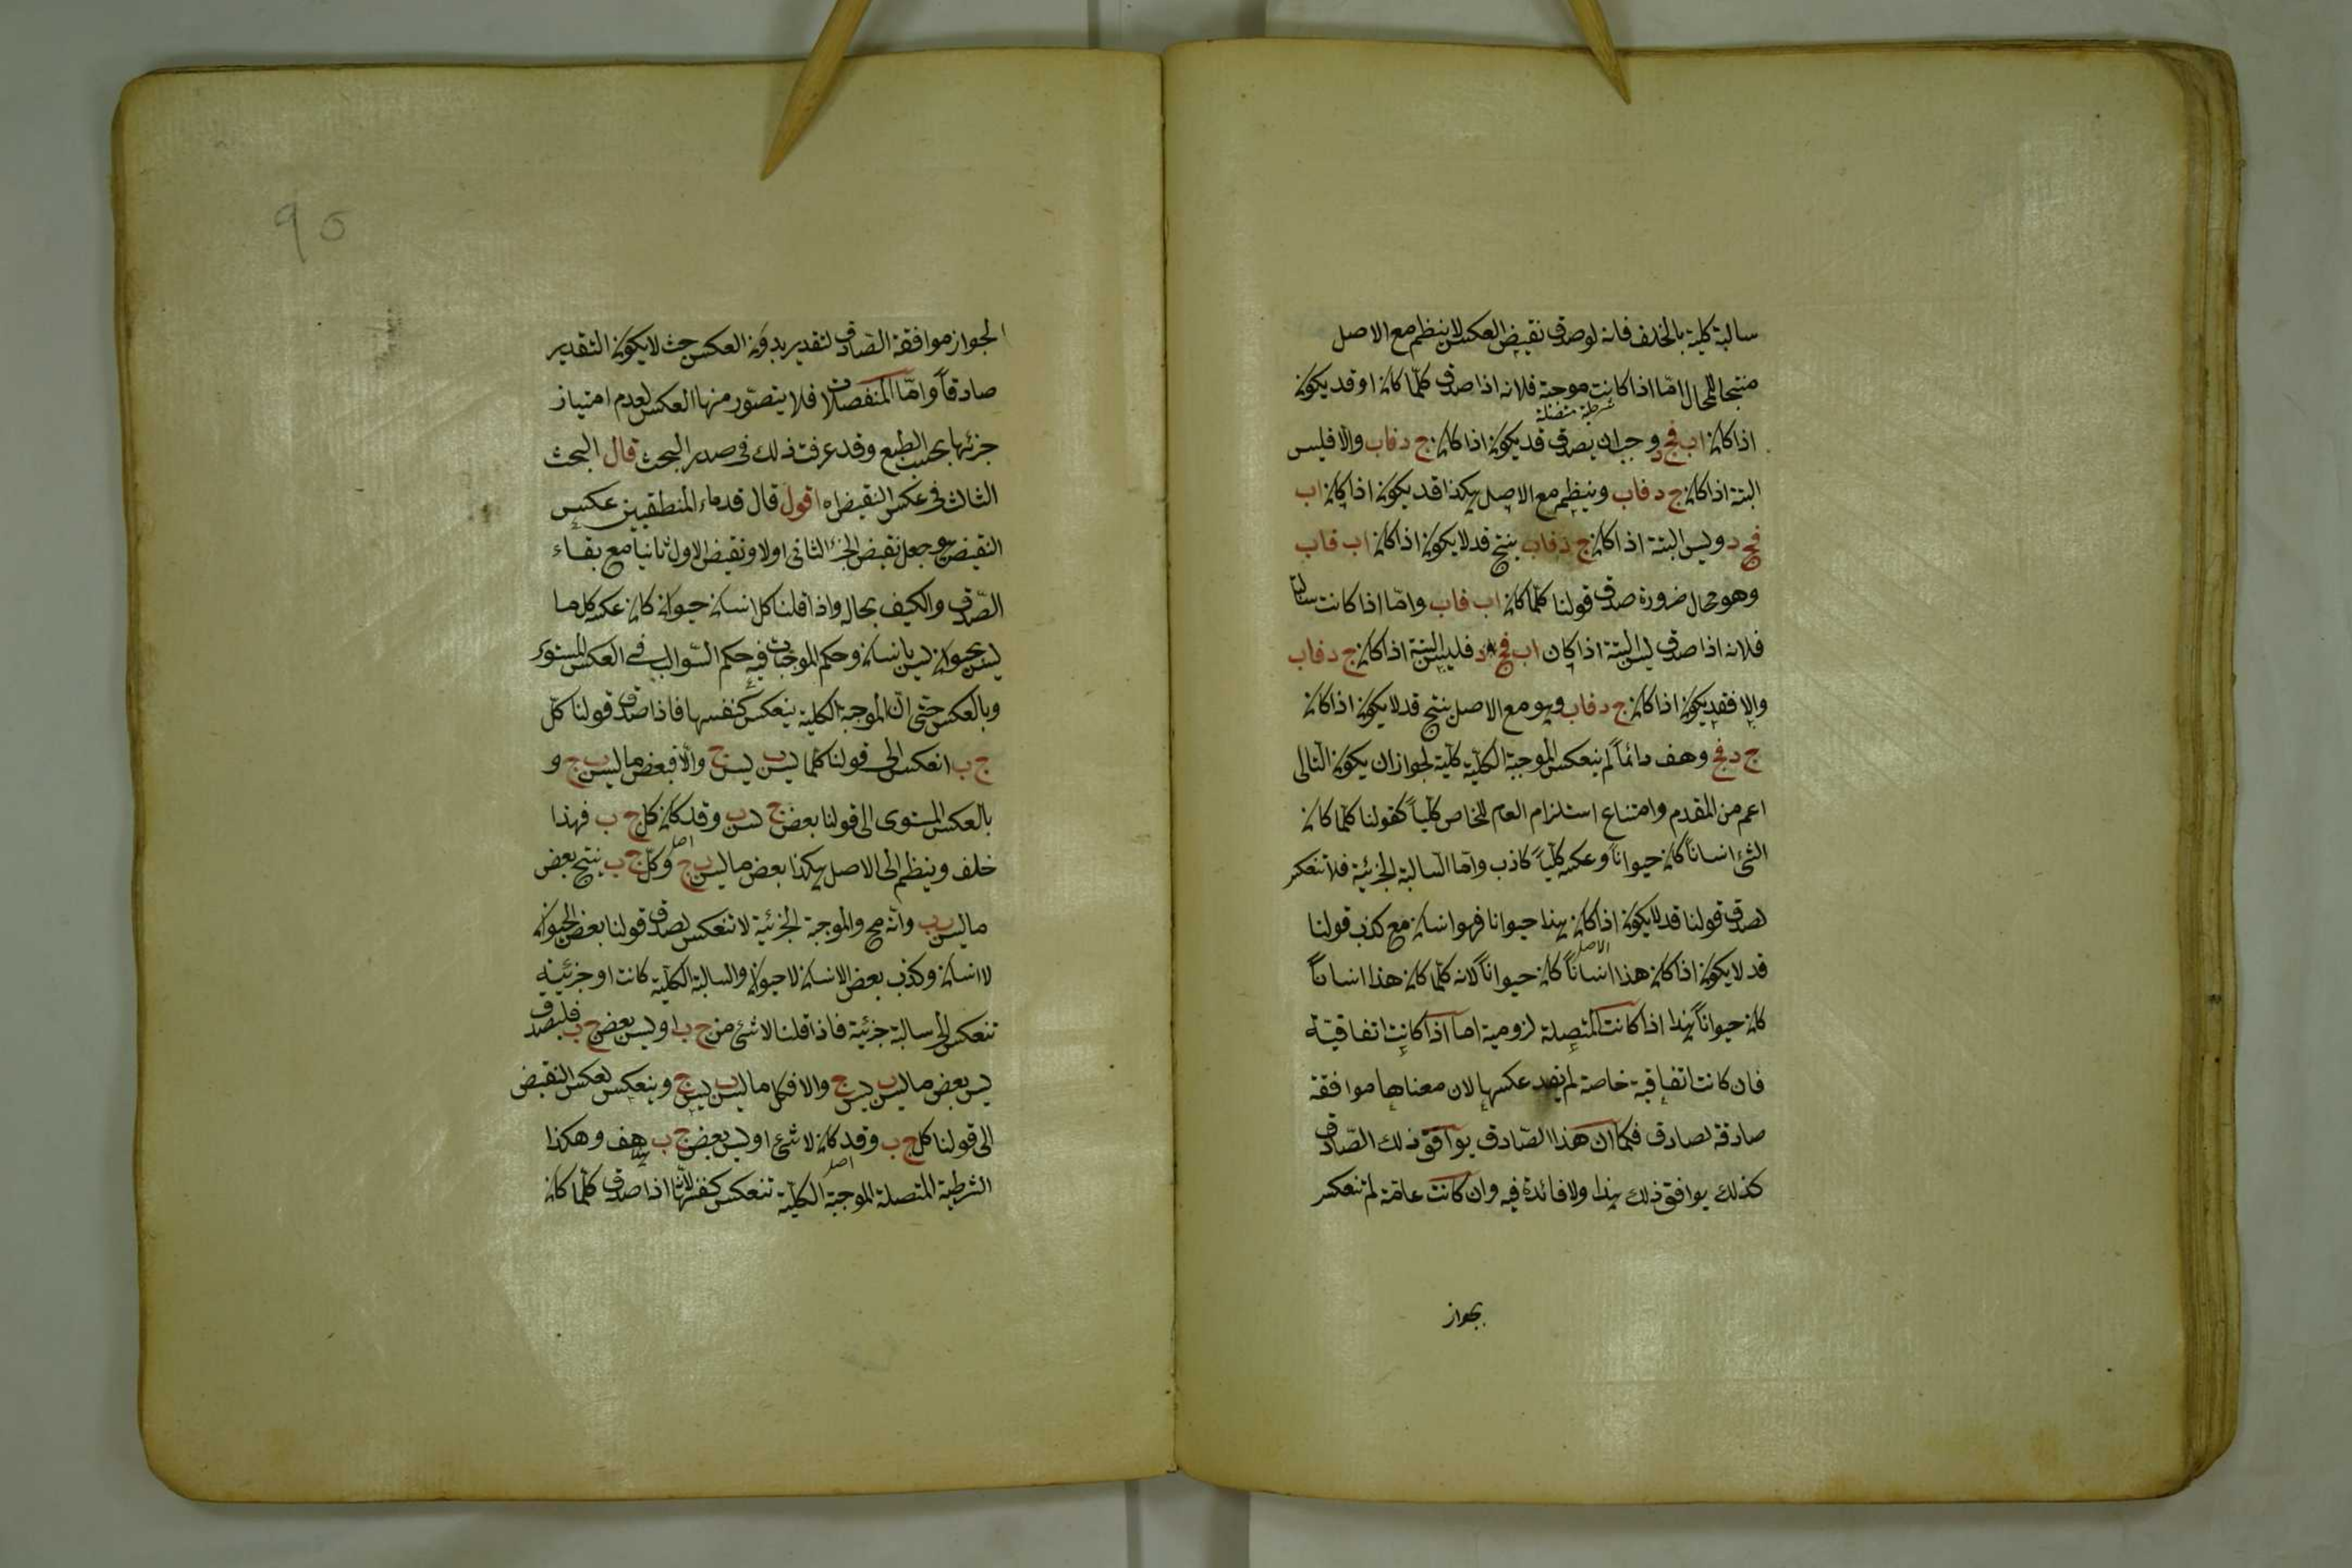 سالبة كلية بالخلف فانه لو صدق نقيض العكس لانتظم مع الاصل
منتجا للمحال اما اذا كانت موجبة فلانه اذا صدق كلما كان او قد يكون
شرطية متصلة
اذا كان اب فج د وجب ان يصدق قد يكون اذا كان ج د فاب والا فليس
البتة اذا كان ج د فاب وينتظم مع الاصل هكذا قد يكون اذا كان اب
فج د وليس البتة اذا كان ج د فاب ينتج قد لا يكون اذا كان اب فاب
وهو محال ضرورة صدق قولنا كلما كان اب فاب وامّا اذا كانت سالبة
فلانه اذا صدق ليس البتة اذا كان اب فج د فليس البتة اذا كان ج د فاب
والا فقد يكون اذا كان ج د فاب وهو مع الاصل ينتج قد لا يكون اذا كان
ج د فج وهف دائماً لم ينعكس الموجبة الكلية كلية لجواز ان يكون التالى
اعم من المقدم وامتناع استلزام العام للخاص كلياً كقولنا كلما كان
الشئ انساناً كان حيواناً وعكسه كلياً كاذب وامّا السالبة الجزئية فلا تنعكس
لصدق قولنا قد لا يكون اذا كان هذا حيوانا فهو انسان مع كذب قولنا
الاصل
قد لا يكون اذا كان هذا انساناً كان حيواناً لانه كلما كان هذا انساناً
كان حيواناً هذا اذا كانت المتصلة لزومية اما اذا كانت اتفاقيّة
فان كانت اتفاقية خاصة لم يفد عكسها لان معناها موافقة
صادقة لصادق فكما ان هذا الصّادق يوافق ذلك الصّادق
كذلك يوافق ذلك هذا ولا فائدة فيه وان كانت عامّة لم تنعكس
بجواز
95
الجواز موافقة الصّادق لتقدير بدون العكس حيث لا يكون التقدير
صادقاً وامّا المنفصلات فلا يتصوّر منها العكس لعدم امتياز
جزئها بحسب الطبع وقد عرفت ذلك فى صدر البحث قال البحث
الثالث فى عكس النقيض اه اقول قال قدماء المنطقيين عكس
النقيض هو جعل نقيض الجزء الثانى اولا ونقيض الاول ثانيا مع بقاء
الصّدق والكيف بحاله واذا قلنا كل انسان حيوان كان عكسه كل ما
ليس بحيوان ليس بانسان وحكم الموجبات فيه حكم السّوالب فى العكس المستوى
وبالعكس حتى انّ الموجبة الكلية ينعكس كنفسها فاذا صدق قولنا كلّ
ج ب انعكس الى قولنا كلما ليس ب ليس ج والّا فبعض ما ليس ب ج و
بالعكس المستوى الى قولنا بعض ج ليس ب وقد كان كل ج ب فهذا
اصل
خلف وينظم الى الاصل هكذا بعض ما ليس ب ج وكلّ ج ب ينتج بعض
ما ليس ب ب وانّه مح والموجبة الجزئية لا تنعكس لصدق قولنا بعض الحيوان
لا انسان وكذب بعض الانسان لا حيوان والسالبة الكلية كانت او جزئية
تنعكس الى سالبة جزئية فاذا قلنا لا شئ من ج ب او ليس بعض ج ب فليصدق
ليس بعض ما ليس ب ليس ج والا فكل ما ليس ب ليس ج وينعكس لعكس النقيض
الى قولنا كل ج ب وقد كان لا شئ او ليس بعض ج ب هف وهكذا
اصل
الشرطية المتصلة الموجبة الكلية تنعكس كنفسها لانّها اذا صدق كلّما كان